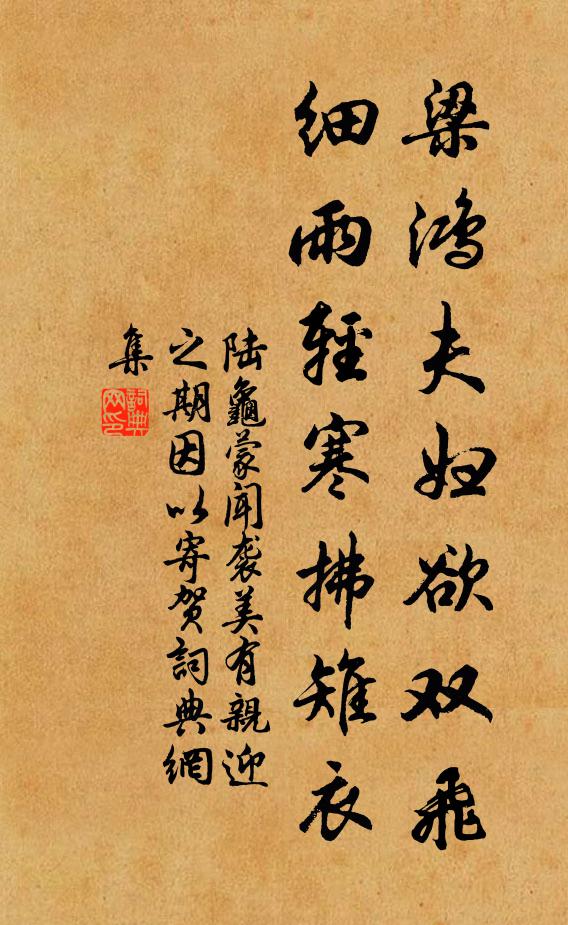 梁鸿夫妇欲双飛
细雨轻寒拂雉衣
陆龜蒙闻袭美有親迎
之期因以寄贺詞典網
集
詞典
网印